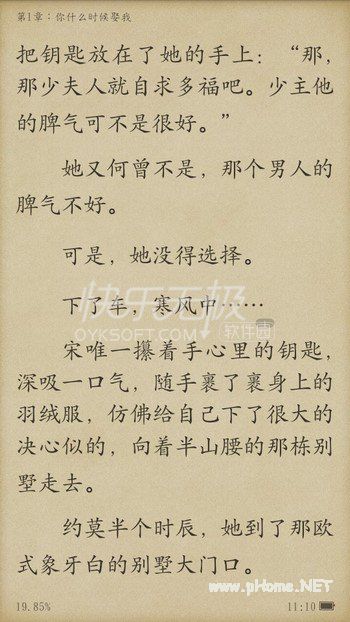 第1章：你什么时候娶我
把钥匙放在了她的手上：“那，
那少夫人就自求多福吧。少主他
的脾气可不是很好。”
她又何曾不是，那个男人的
脾气不好。
可是，她没得选择。
下了车，寒风中……
快乐无极
OYKSOFT.COM 软件园
宋唯一攥着手心里的钥匙，
深吸一口气，随手裹了裹身上的
羽绒服，仿佛给自己下了很大的
决心似的，向着半山腰的那栋别
墅走去。
约莫半个时辰，她到了那欧
式象牙白的别墅大门口。
www.pHome.NET
19.85% 11:10